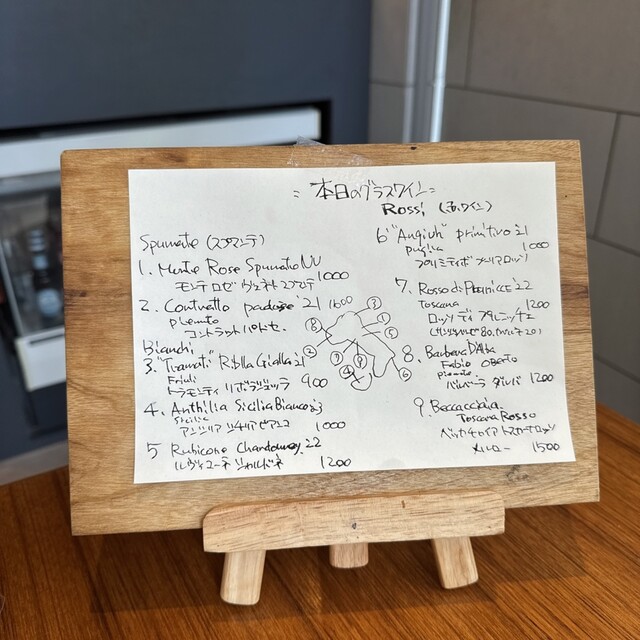 = 本日のグラスワイン =
Spumante (スプマンテ)
1. Monte Rose Spumante NV
モンテ ロゼ ヴェネト スプマンテ 1000
2. Contratto padosé '21 1600
piemonte
コントラット パドセ
Bianchi
3. "Tramonti" Ribolla Gialla 21
Friuli
トラモンティ リボッラジャッラ 900
4. Anthìlia Sicilia Bianco 23
Sicilia
アンシリア シチリア ビアンコ 1000
5 Rubicone Chardonnay 22
ルビコーネ シャルドネ 1200
Rossi (赤ワイン)
6 "Augich" primitivo 21
puglia 1000
プリミティーボ
7. Rosso di '22
Toscana 1200
ロッソ ディ
8. Barbera D'Alba
Fabio Oberto
Piemonte
バルベーラ ダルバ 1200
9. Beccacciaia
Toscana Rosso
ベッカチャイア トスカーナロッソ
メルロー 1500
1
2
3
4
5
6
7
8
9